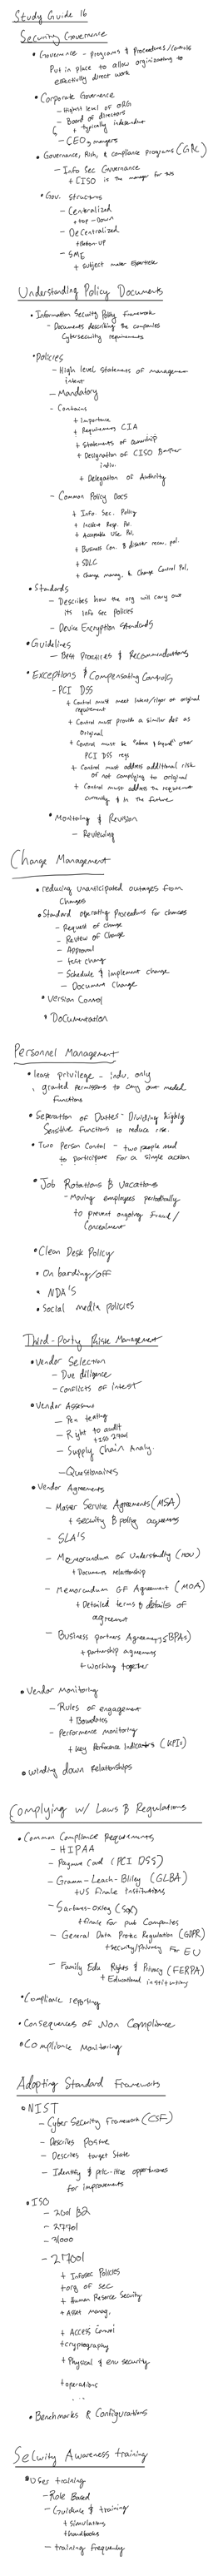 Study Guide 16
Security Governance
• Governance - Programs & Procedures/controls
Put in place to allow orginizations to
effectively direct work
• Corporate Governance
- Highest level of ORG
- Board of directors
+ typically independent
- CEO, managers
• Governance, Risk, & compliance programs (GRC)
- Info Sec Governance
+ CISO is the manager for this
• Gov. Structures
- Centralized
+ top-Down
- DeCentralized
+ Bottom-UP
- SME
+ subject matter expertiese
Understanding Policy Documents
• Information Security Policy framework
- Documents describing the companies
Cybersecurity requirements
• Policies
- High level statements of management
intent
- Mandatory
- Contains
+ Importance
+ Requirements CIA
+ Statements of ownership
+ Designation of CISO or other
indiv.
+ Delegation of Authority
- Common Policy Docs
+ Info. Sec. Policy
+ Incident Resp. Pol.
+ Acceptable Use Pol.
+ Business Con. & disaster recov. pol.
+ SDLC
+ Change manag. & Change Control Pol.
• Standards
- Describes how the org will carry out
its Info Sec Policies
- Device Encryption Standards
• Guidelines
- Best Practices & Recommendations
• Exceptions & Compensating Controls
- PCI DSS
+ Control must meet intent/rigor of original
requirement
+ Control must provide a similar def as
original
+ Control must be "above & beyond" other
PCI DSS reqs
+ Control must address additional risk
of not complying to original
+ Control must address the requirement
currently & in the future
• Monitoring & Revision
- Reviewing
Change Management
• reducing unanticipated outages from
Changes
• Standard operating Procedures for changes
- Request of change
- Review of Change
- Approval
- test change
- Schedule & Implement change
- Document Change
• Version Control
• Documentation
Personnel Management
• least privilege - indv. only
granted permissions to carry out needed
functions
• Separation of Duties - Dividing highly
Sensitive functions to reduce risk.
• Two Person Control - two people need
to participate for a single action
• Job Rotations & Vacations
- Moving employees periodically
to prevent ongoing fraud/
Concealment
• Clean Desk Policy
• On boarding/off
• NDA'S
• Social media policies
Third-Party Risk Management
• Vendor Selection
- Due diligence
- Conflicts of interest
• Vendor Assessment
- Pen testing
- Right to audit
+ ISO 27001
- Supply Chain Analy.
- Questionaires
• Vendor Agreements
- Master Service Agreements (MSA)
+ security & policy agreements
- SLA'S
- Memorandum of Understanding (MOU)
+ Documents relationship
- Memorandum OF Agreement (MOA)
+ Detailed terms & details of
agreement
- Business partners Agreements (BPAs)
+ partnership agreements
+ working together
• Vendor Monitoring
- Rules of engagement
+ Boundaries
- Performance monitoring
+ Key Performance Indicators (KPIs)
• winding down Relationships
Complying w/ Laws & Regulations
• Common Compliance Requirements
- HIPAA
- Payment Card (PCI DSS)
- Gramm-Leach-Bliley (GLBA)
+ US Finance Institutions
- Sarbans-Oxley (SOX)
+ finance for pub Companies
- General Data Protec Regulation (GDPR)
+ security/privacy for EU
- Family Edu Rights & Privacy (FERPA)
+ Educational institutions
• Compliance reporting
• Consequences of Non Compliance
• Compliance Monitoring
Adopting Standard Frameworks
• NIST
- Cyber Security Framework (CSF)
- Describes Posture
- Describes target State
- Identify & oppurtunities
for improvements
• ISO
- 27701
- 31000
- 27001
+ Infosec Policies
+ org of sec
+ Human Resource Security
+ Asset Manag.
+ Access Control
+ cryptography
+ Physical & env security
+ operations
...
• Benchmarks & Configurations
Security Awareness training
• User training
- Role Based
- Guidence & training
+ simulations
+ handbooks
- training frequency